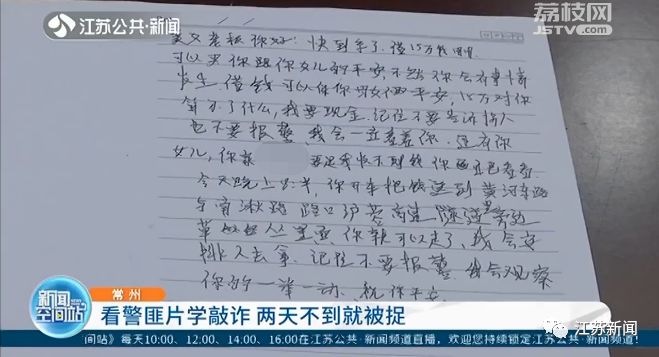 江苏公共·新闻
荔枝网
JSTV.COM
老板你好!快到年了,借15万我用用
可以买你跟你女儿的平安,不然你会有事情
发生,借钱可以保你跟女儿平安,15万对你
算不了什么,我要现金.记住不要告诉旁人
也不要报警,我会一直看着你,还有你
女儿,你家
要是我收不到钱
今天晚上 半,你开车把钱送到黄河东路
路口沪蓉高速 旁边
草 丛里面,你就可以走了,我会安
排人去拿.记住不要报警 我会观察
你的一举一动.祝你平安
常州
新闻空间站
看警匪片学敲诈 两天不到就被捉
间站》每天10:00、12:00、14:00、16:00在江苏公共·新闻频道直播,欢迎您持续锁定江苏公共·新闻频道
江苏新闻